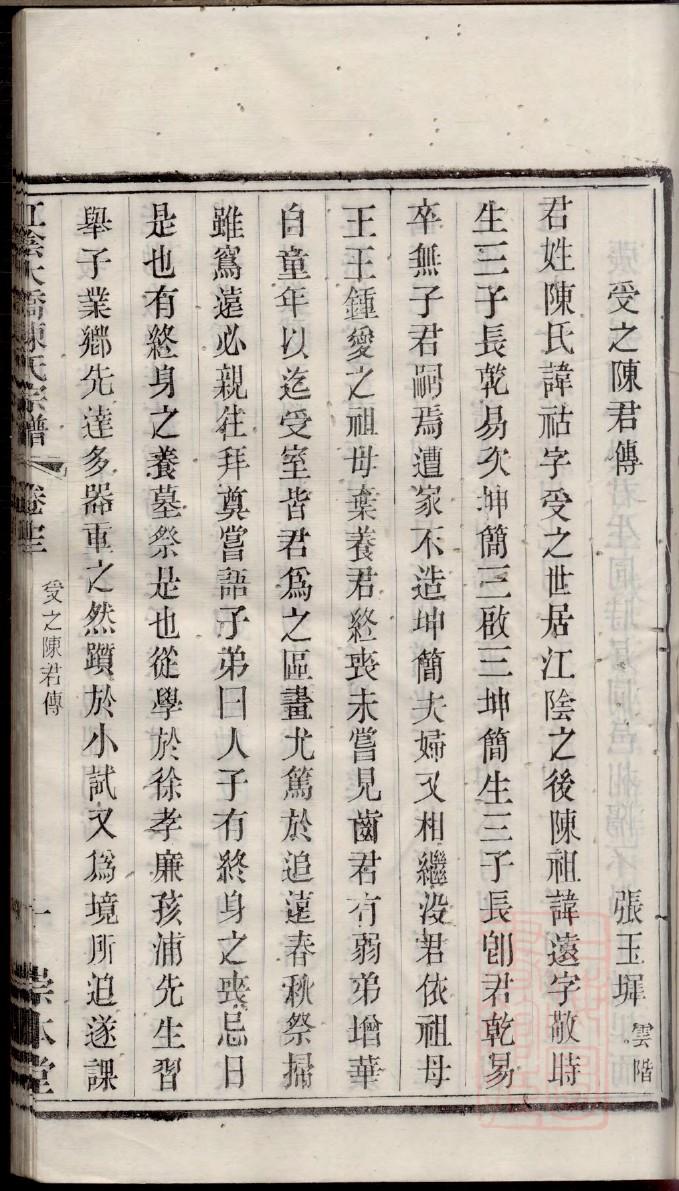 受之陳君傳
張玉墀 雲階
君姓陳氏諱祜字受之世居江陰之後陳祖諱遠字敬時
生三子長乾易次坤簡三啟三坤簡生三子長卽君乾易
卒無子君嗣焉遭家不造坤簡夫婦又相繼没君依祖母
王王鍾愛之祖母棄養君終喪未嘗見齒君有弱弟增華
自童年以迄受室皆君爲之區畫尤篤於追遠春秋祭掃
雖寫遠必親往拜奠嘗語子弟曰人子有終身之喪忌日
是也有終身之養墓祭是也從學於徐孝廉孩浦先生習
舉子業鄉先達多器重之然躓於小試又爲境所迫遂課
江陰大橋陳氏宗譜 卷
受之陳君傳
一 崇本堂